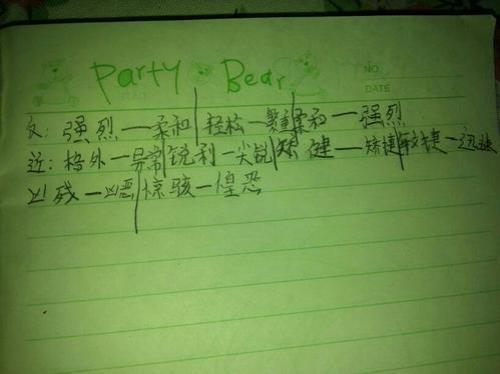 Party Bear
NO.
DATE
反：强烈—柔和 轻松—繁重 柔和—强烈
近：格外—异常 锐利—尖锐 矫健—矫捷 敏捷—迅速
凶残—凶恶 惊骇—惶恐